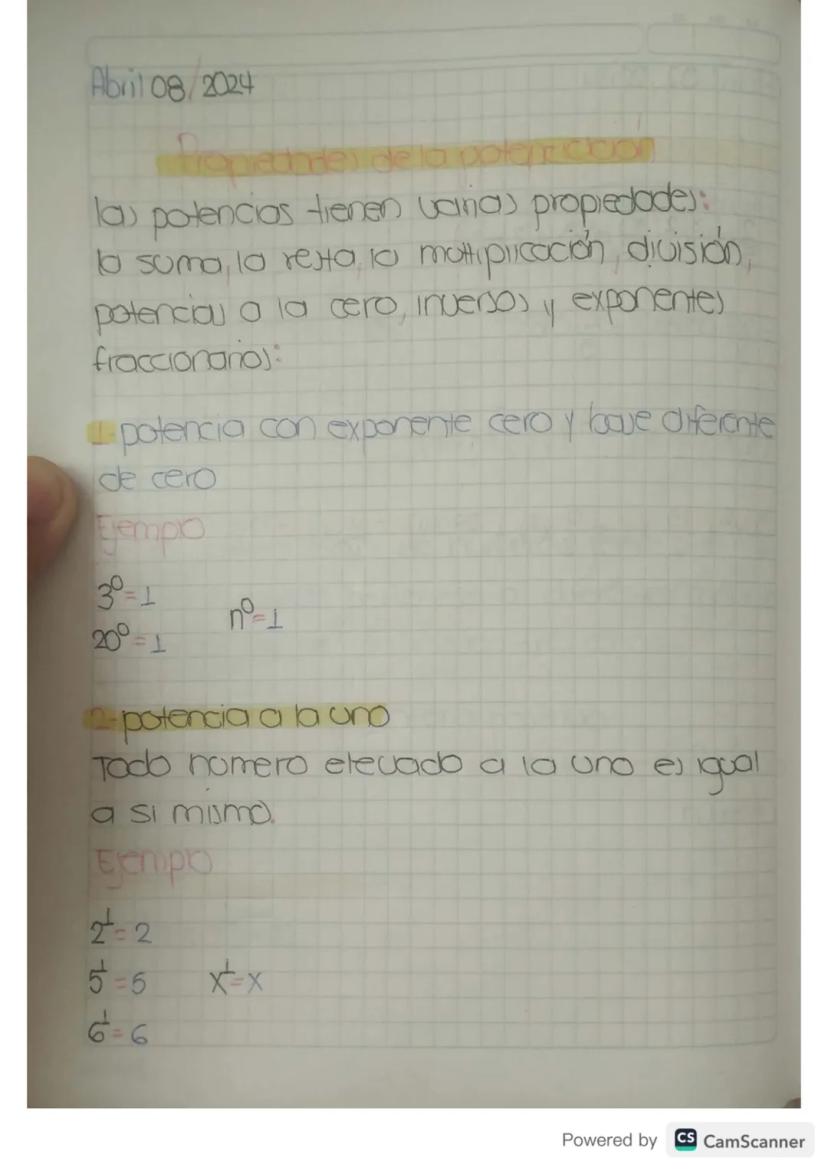 Abril 08/2024
Propiedades de la potenciación
las potencias tienen varias propiedades:
la suma, la resta, la multiplicación, división,
potencias a la cero, inversos y exponentes
fraccionarios:
1-potencia con exponente cero y base diferente
de cero
Ejemplo
3⁰=1
n⁰=1
20⁰=1
2-potencia a la uno
Todo numero elevado a la uno es igual
a si mismo.
Ejemplo
2¹=2
5¹=5 x¹=x
6¹=6
Powered by CS CamScanner